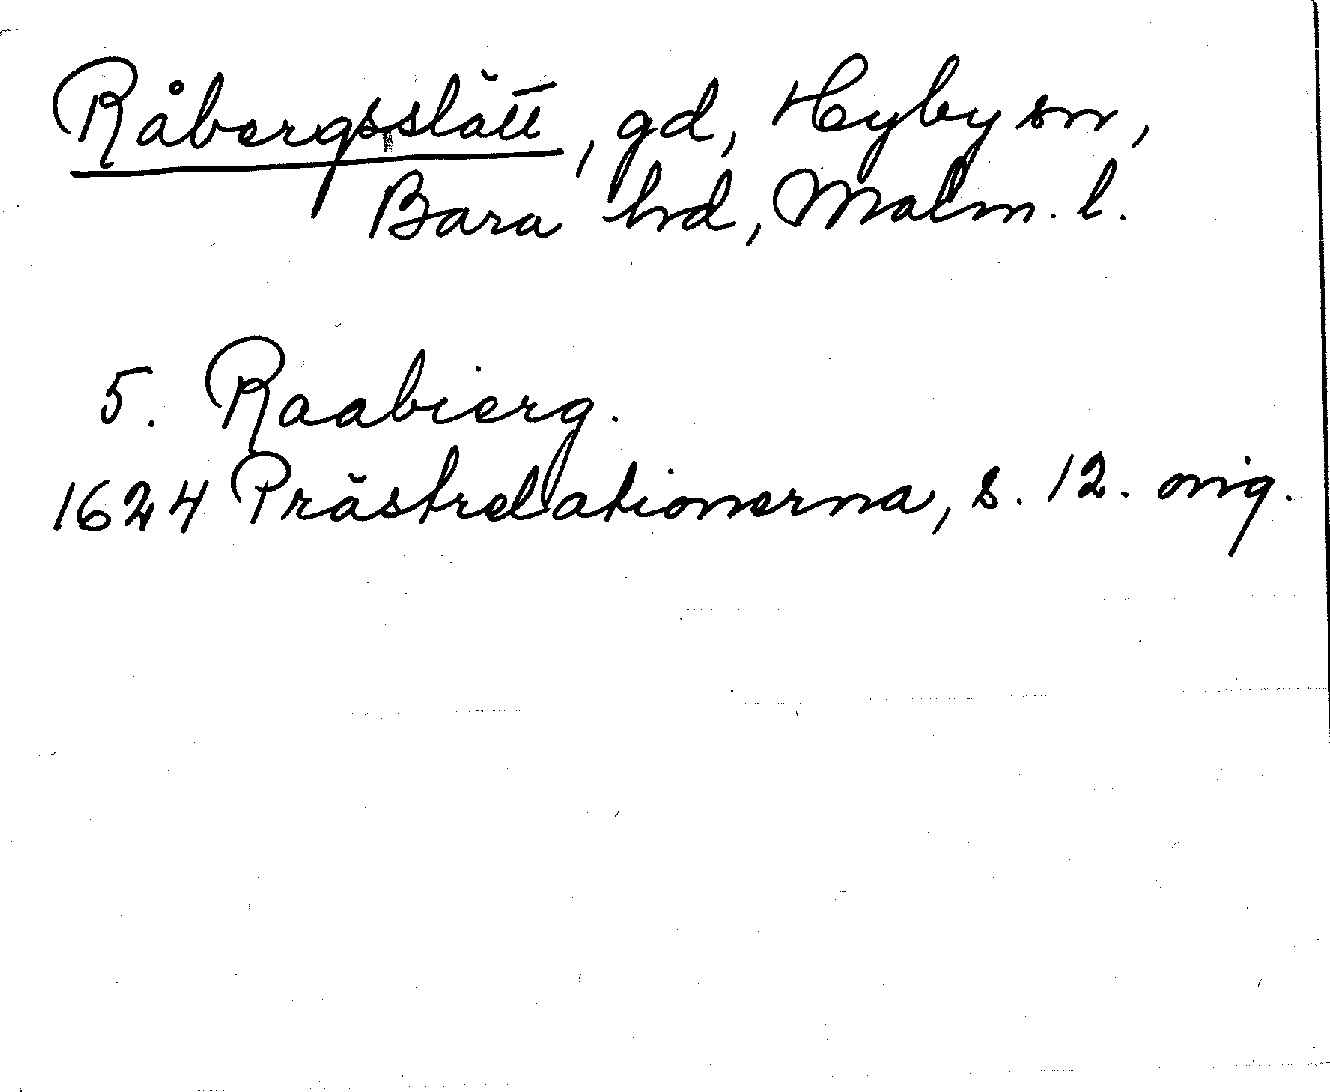 Råbergsslätt, gd, Hyby sn,
Bara hd, Malm. l.
5. Raabierg.
1624 Prästrelationerna, s. 12. orig.